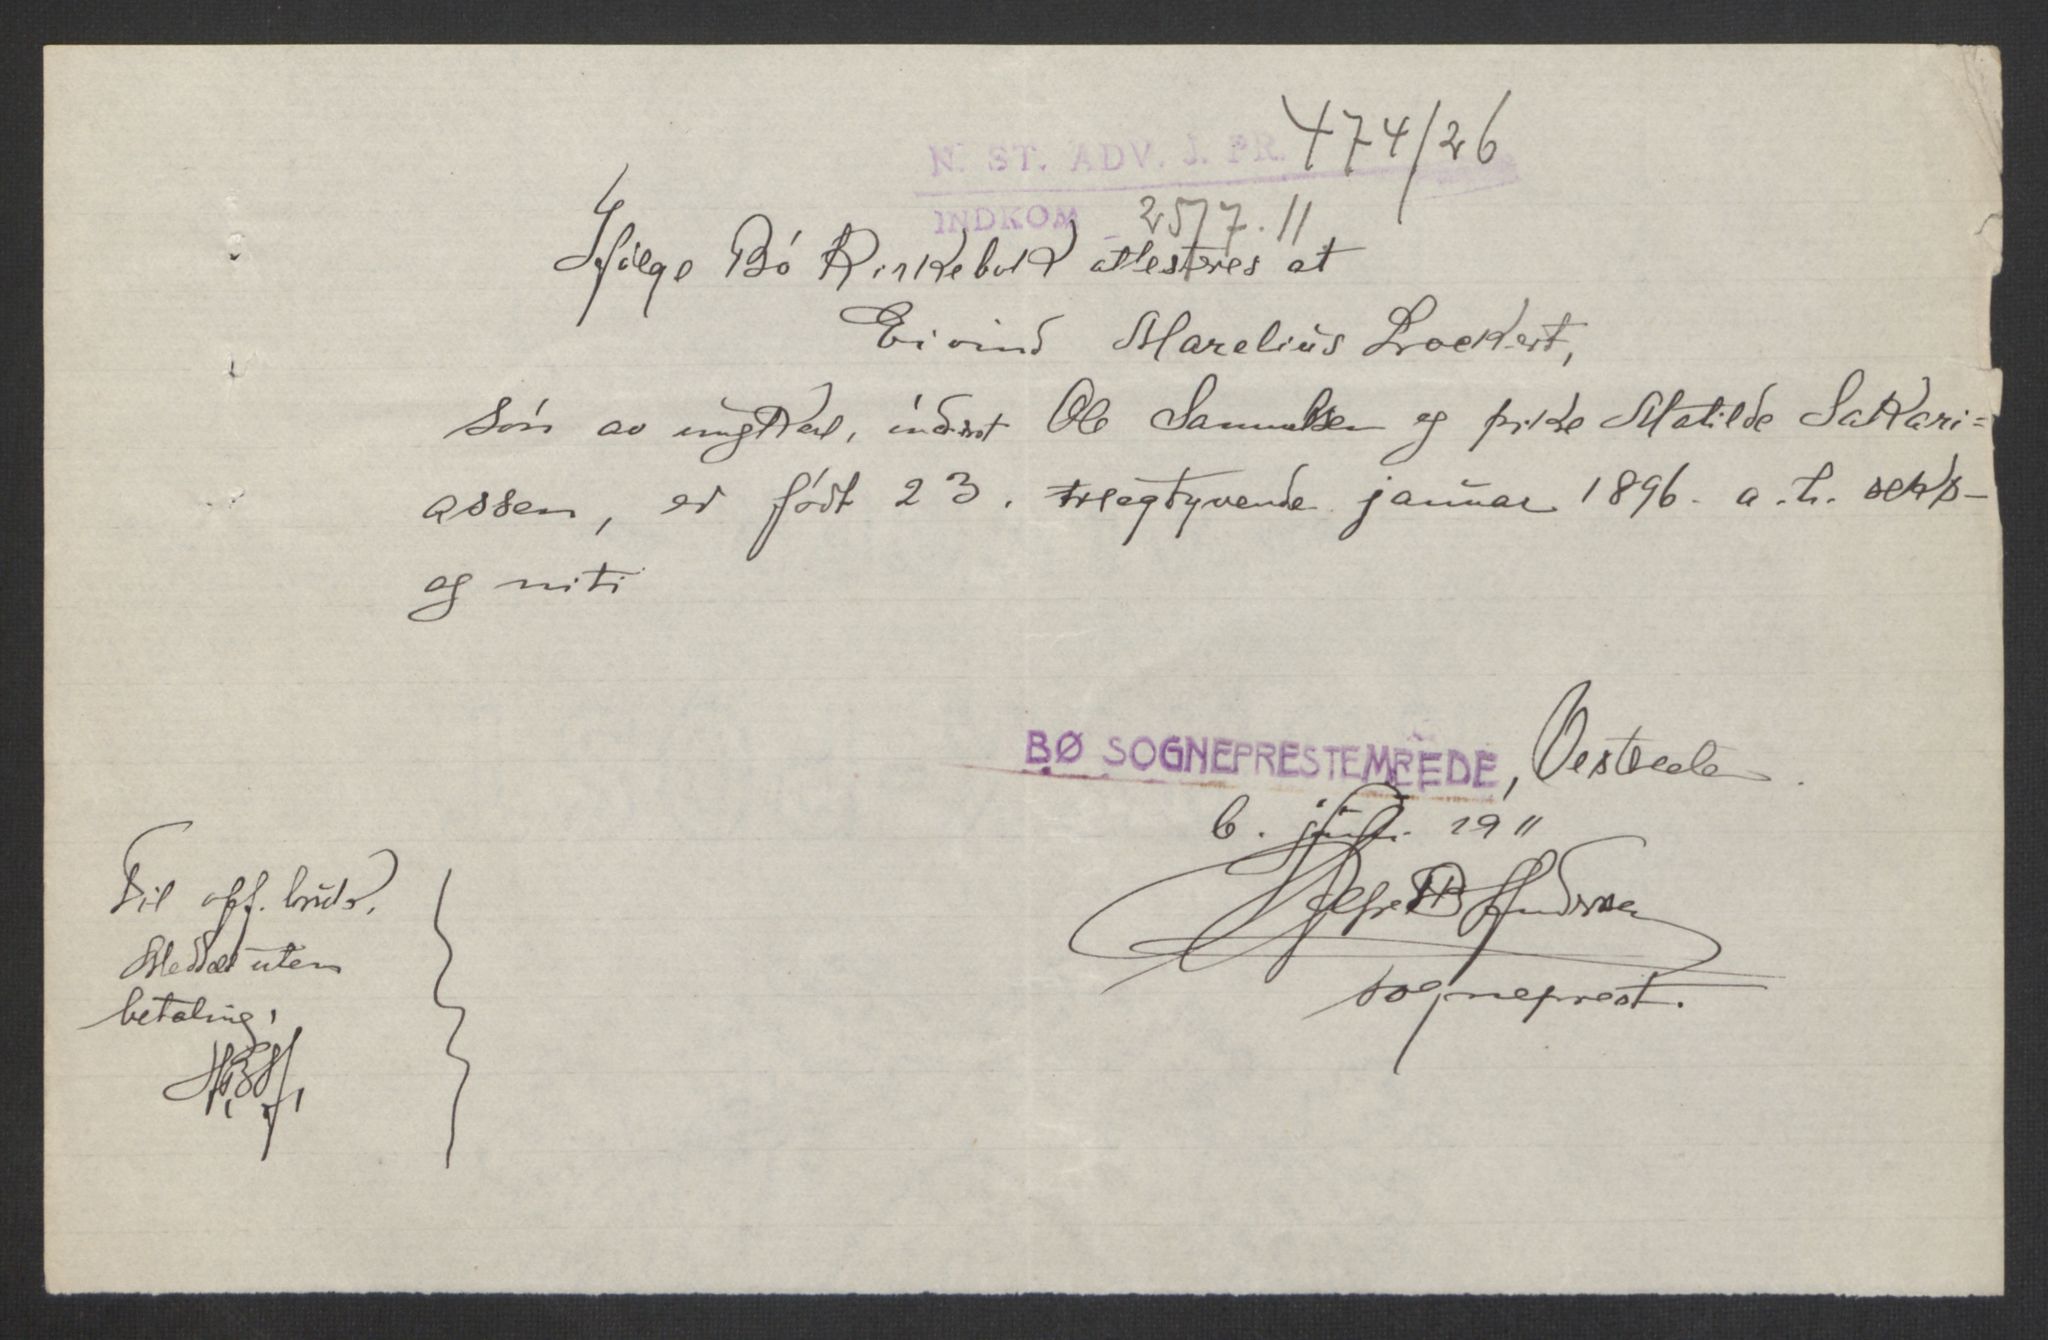 N. ST. ADV. J. PR. 474/26
INDKOM 25/7.11
Ifölge Bö kirkebok attesteres at
Eivind Marelius Lockert,
sön av ungkarl, inderst Ole Samuelsen og pike Matilde Sakari=
assen, er födt 23. treogtyvende januar 1896 - a.h. seks-
og niti
BØ SOGNEPRESTEMBEDE, Vesteraalen.
6. juli. 1911
Alfred B Andersen
sogneprest.
Til off. bruk.
Meddelt uten
betaling.